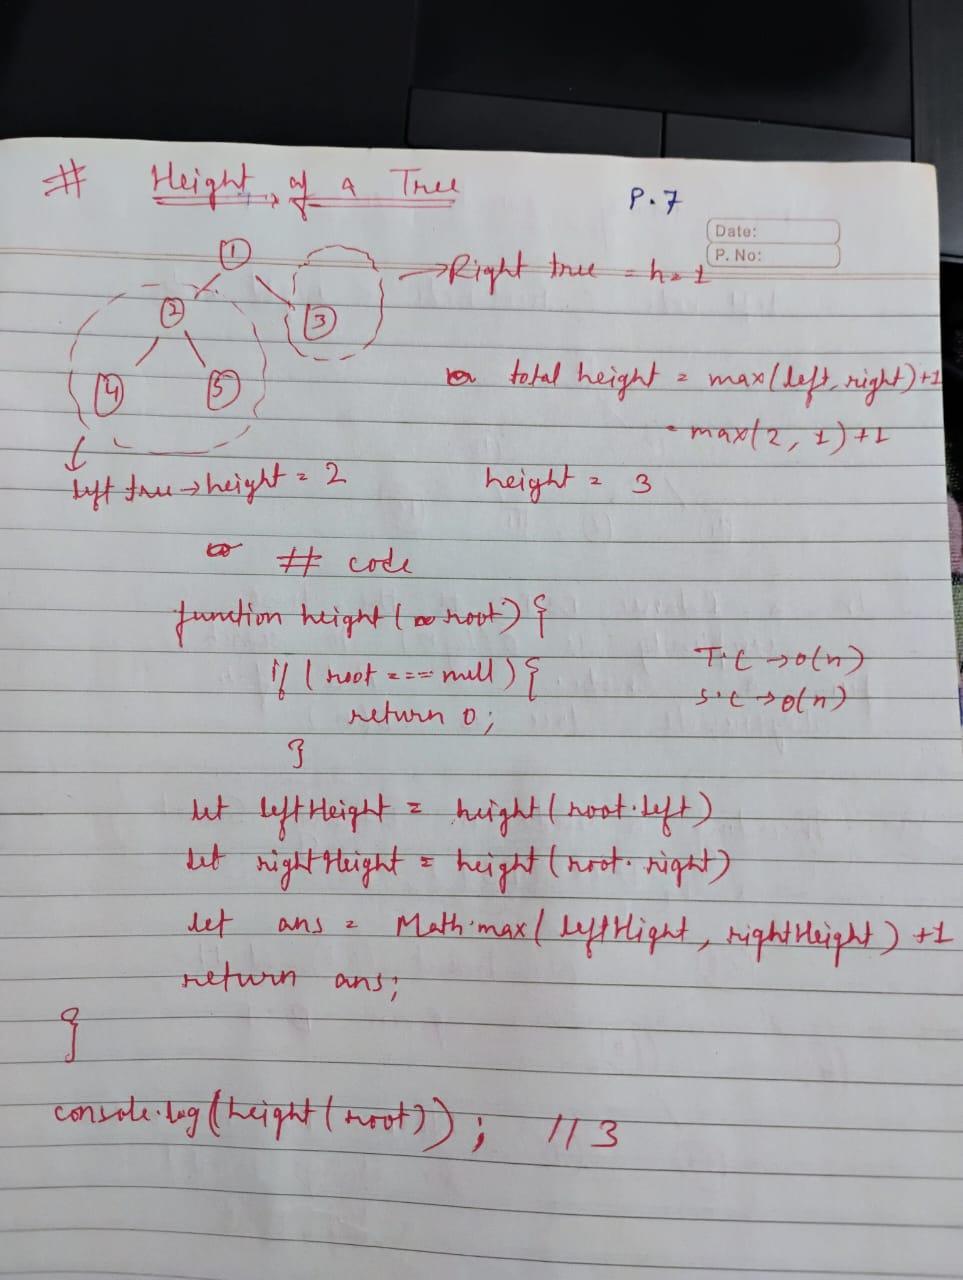 # Height of a Tree
P.7
Date:
P. No:
1
2
3
4
5
→ Right tree = h = 1
total height = max(left, right)+1
= max(2, 1)+1
left tree → height = 2
height = 3
# code
function height(root) {
if (root === null) {
T.C → O(n)
return 0;
S.C → O(n)
}
let leftHeight = height(root.left)
let rightHeight = height(root.right)
let ans = Math.max(leftHight, rightHeight) +1
return ans;
}
console.log(height(root)); // 3